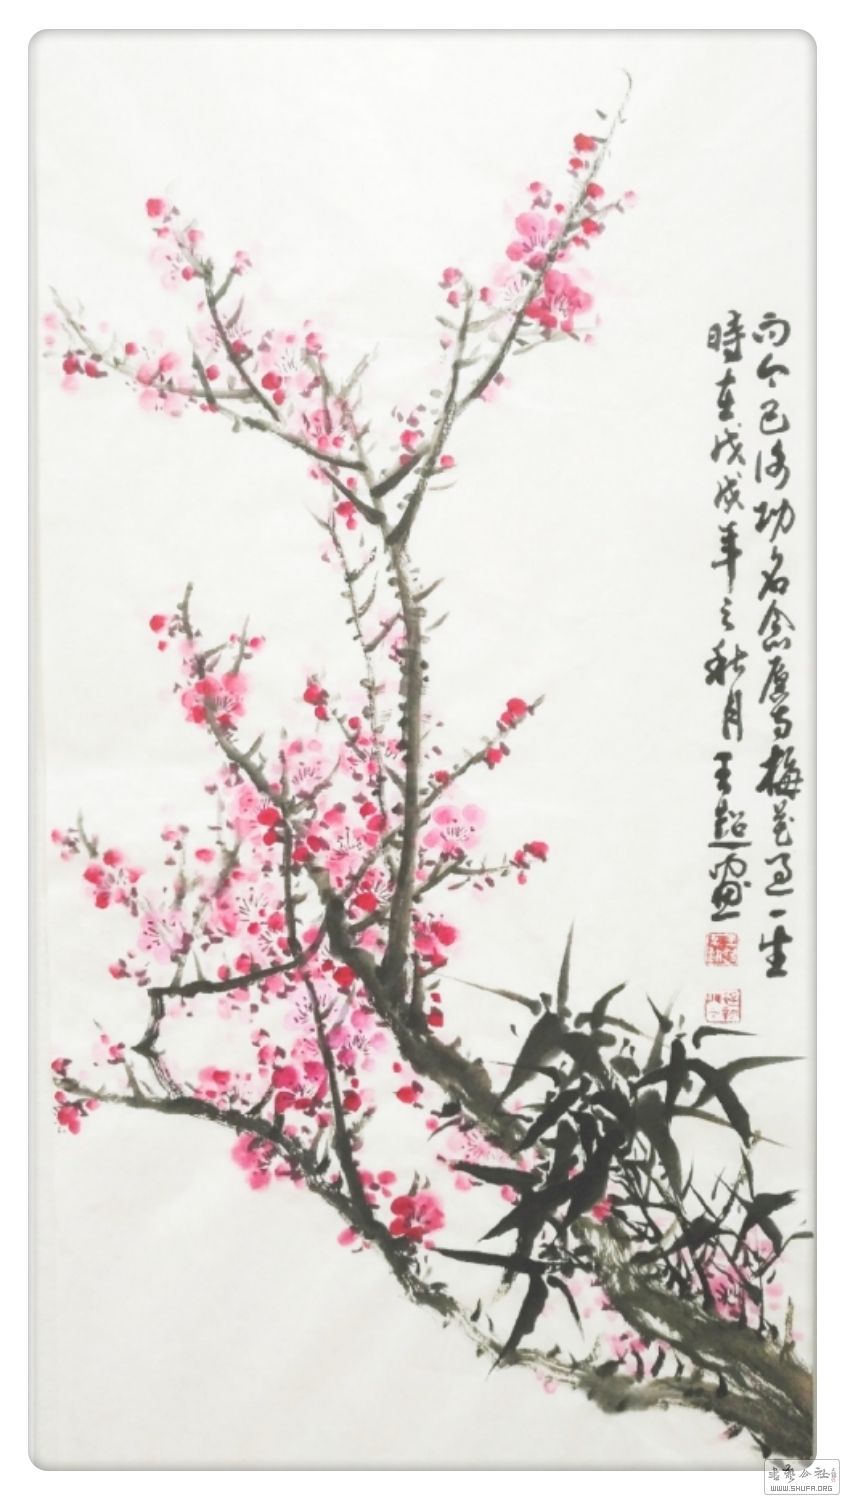 而今已洛功名念愿与梅花过一生
時在戊戌年之秋月王超畫
書藝公社
WWW.SHUFA.ORG